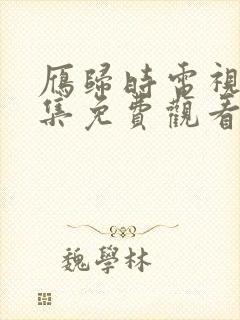 雁歸時電視
集免費觀看
魏學林